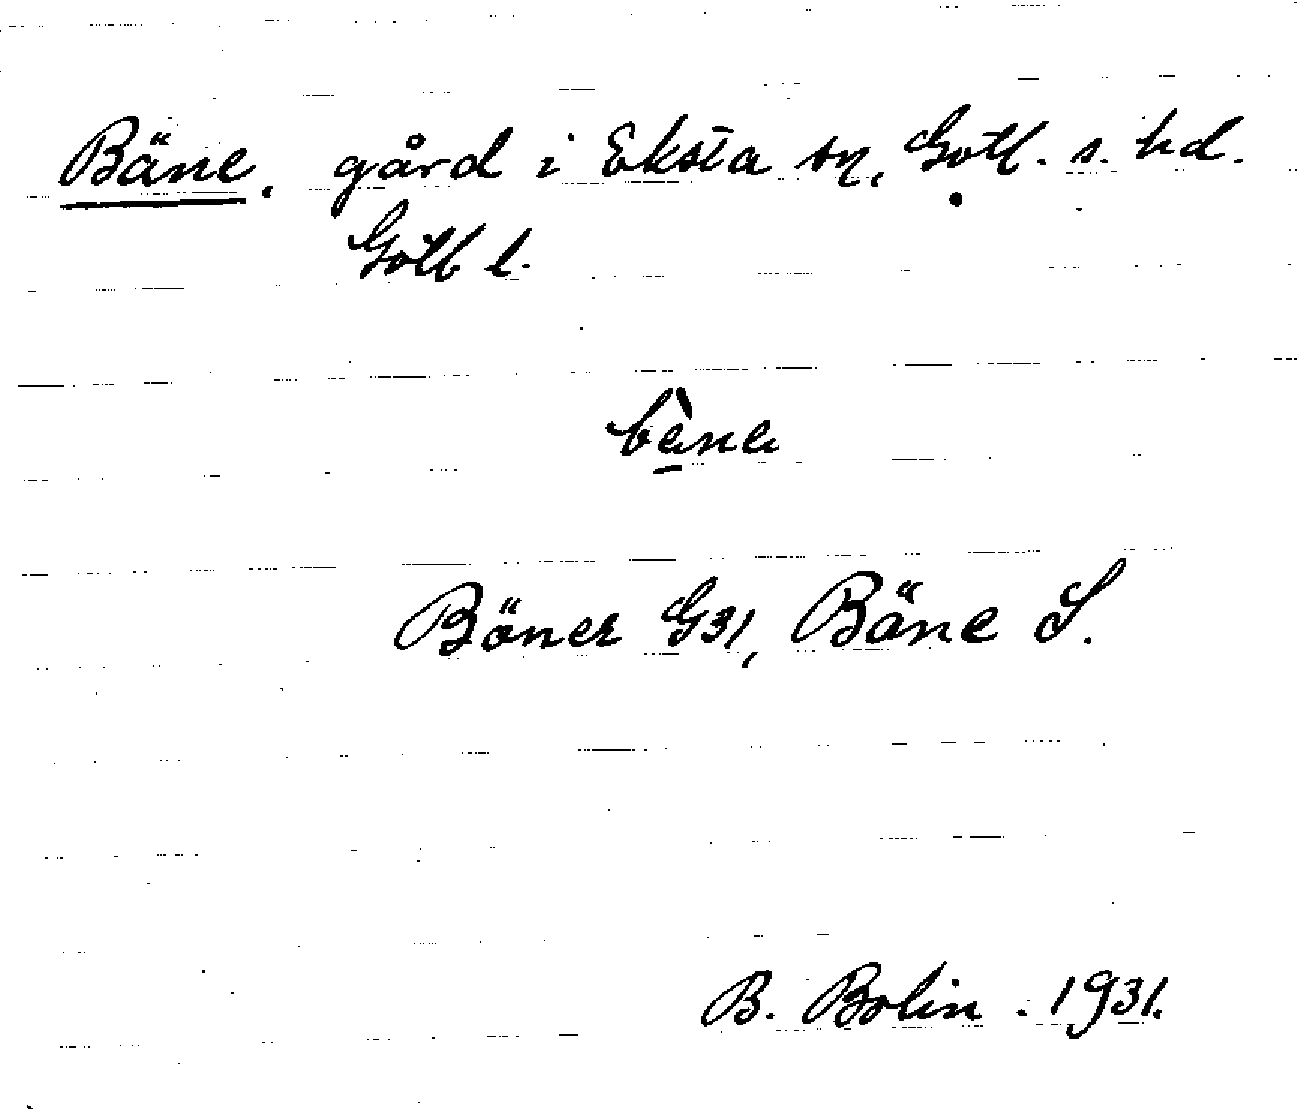 Bäne, gård i Eksta sn, Gotl. s. hd.
Gotl l.
bêne
Böner G31, Bäne S.
B. Bolin. 1931.